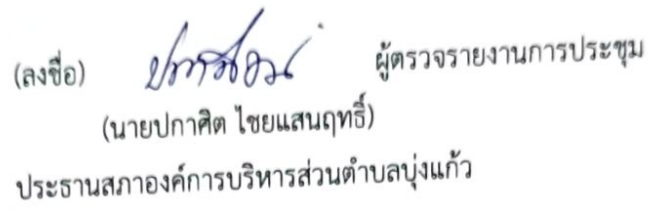 (ลงชื่อ) ผู้ตรวจรายงานการประชุม
(นายปกาศิต ไชยแสนฤทธิ์)
ประธานสภาองค์การบริหารส่วนตำบลบุ่งแก้ว